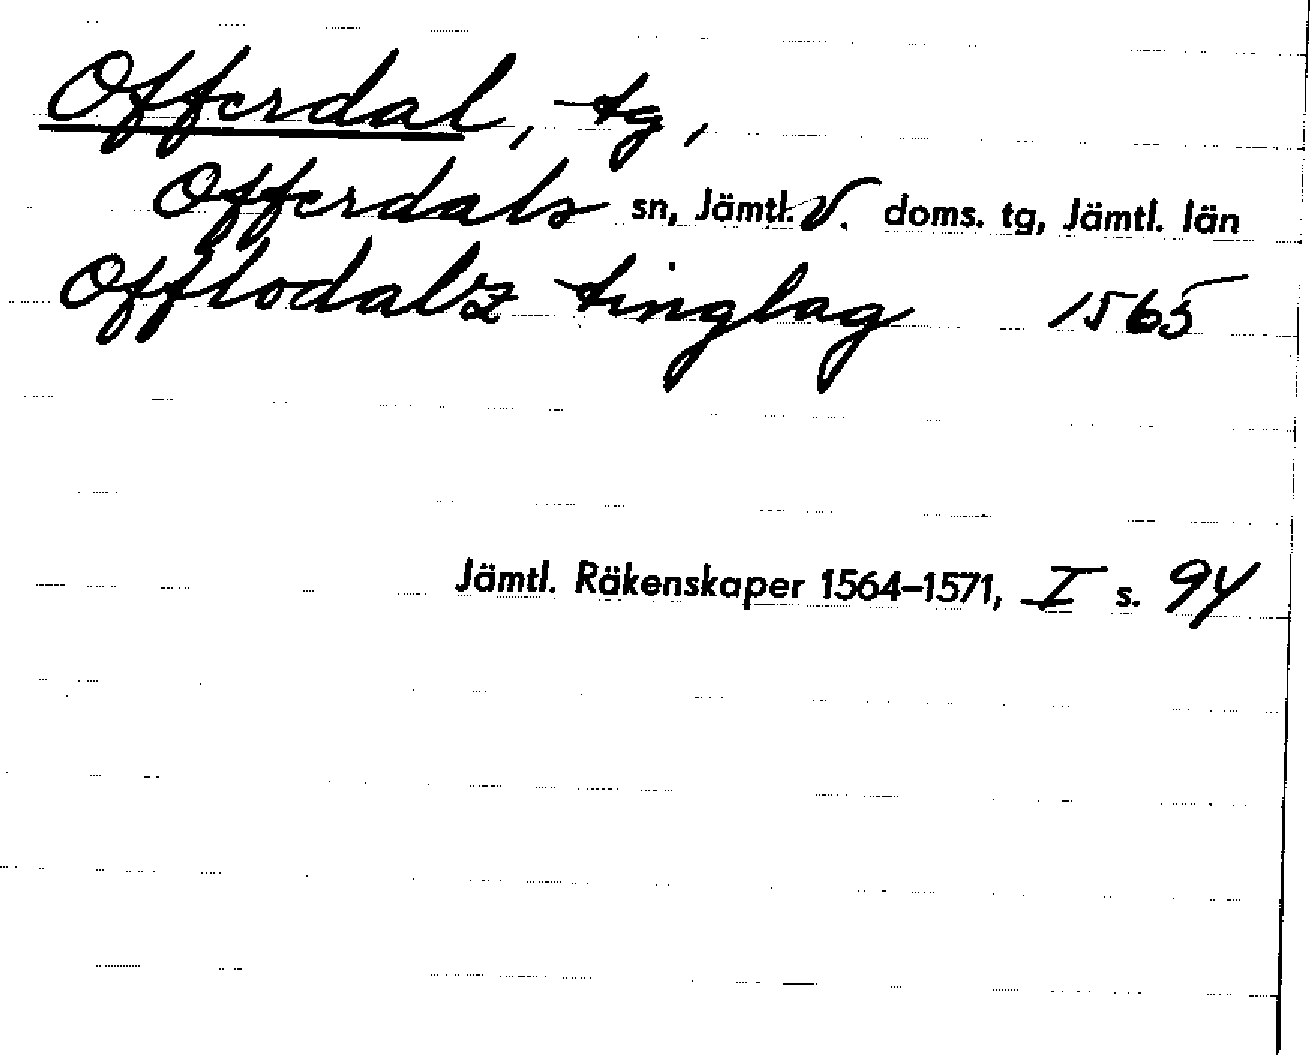 Offerdal, tg,
Offerdals sn, Jämtl. V. doms. tg, Jämtl. län
Offlodalz tinglag 1565
Jämtl. Räkenskaper 1564–1571, I s. 94